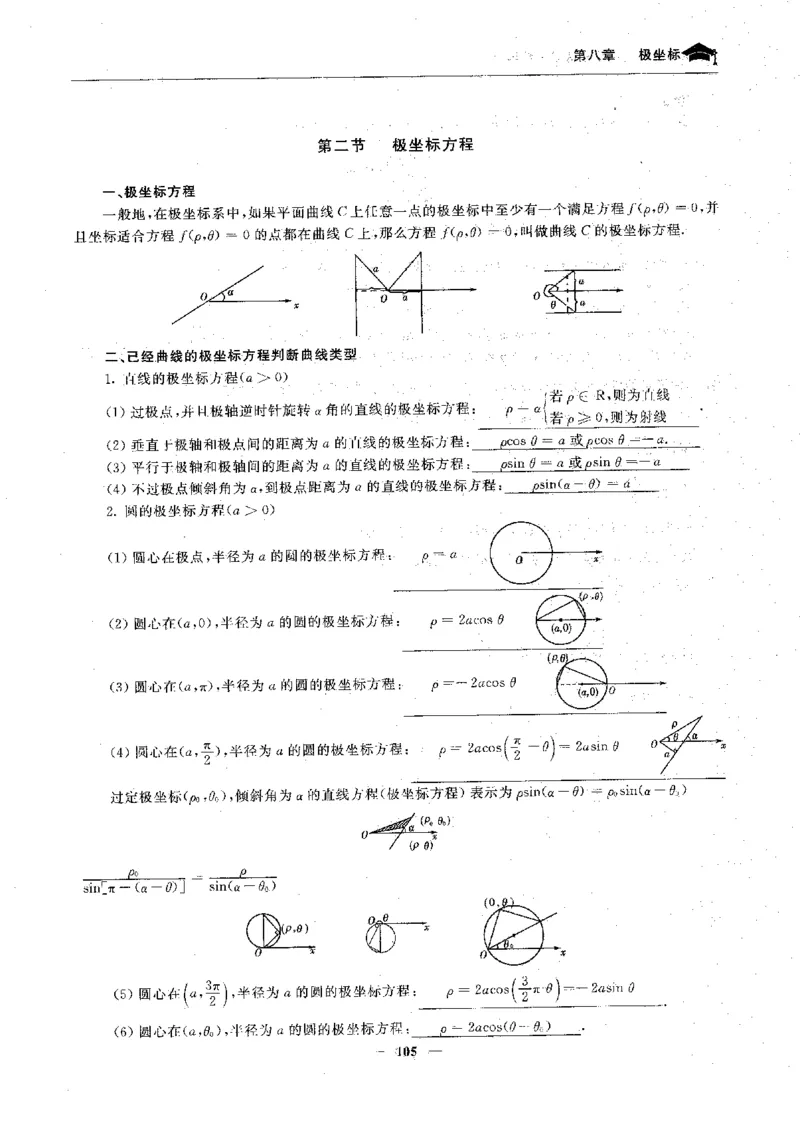 第八章 极坐标
第二节 极坐标方程
一、极坐标方程
一般地,在极坐标系中,如果平面曲线 C 上任意一点的极坐标中至少有一个满足方程 f(ρ,θ) = 0,并
且坐标适合方程 f(ρ,θ) = 0 的点都在曲线 C 上,那么方程 f(ρ,θ) = 0,叫做曲线 C 的极坐标方程.
O α x
a O a
O θ a a
二、已经曲线的极坐标方程判断曲线类型
1. 直线的极坐标方程(a > 0)
(1) 过极点,并且极轴逆时针旋转 α 角的直线的极坐标方程: ρ = α {若 ρ ∈ R,则为直线
若 ρ ⩾ 0,则为射线 .
(2) 垂直于极轴和极点间的距离为 a 的直线的极坐标方程: ρcos θ = a 或 ρcos θ = − a.
(3) 平行于极轴和极轴间的距离为 a 的直线的极坐标方程: ρsin θ = a 或 ρsin θ = − a
(4) 不过极点倾斜角为 α,到极点距离为 a 的直线的极坐标方程: ρsin(α − θ) = a
2. 圆的极坐标方程(a > 0)
(1) 圆心在极点,半径为 a 的圆的极坐标方程: ρ = a O x
(ρ,θ)
(2) 圆心在(a,0),半径为 a 的圆的极坐标方程: ρ = 2acos θ (a,0)
(ρ,θ)
(3) 圆心在(a,π),半径为 a 的圆的极坐标方程: ρ = − 2acos θ (a,0) O
(4) 圆心在(a,π/2),半径为 a 的圆的极坐标方程: ρ = 2acos(π/2 − θ) = 2asin θ ρ O θ α x a
过定极坐标(ρ₀,θ₀),倾斜角为 α 的直线方程(极坐标方程) 表示为 ρsin(α − θ) = ρ₀sin(α − θ₀)
O α (ρ₀ θ₀) x
(ρ θ)
ρ₀/sin[π − (α − θ)] = ρ/sin(α − θ₀)
(ρ,θ) O x
O θ x
(0,θ) O θ₀ x
(5) 圆心在(a,3π/2),半径为 a 的圆的极坐标方程: ρ = 2acos(3/2π-θ) = − 2asin θ .
(6) 圆心在(a,θ₀),半径为 a 的圆的极坐标方程: ρ = 2acos(θ − θ₀) .
— 105 —